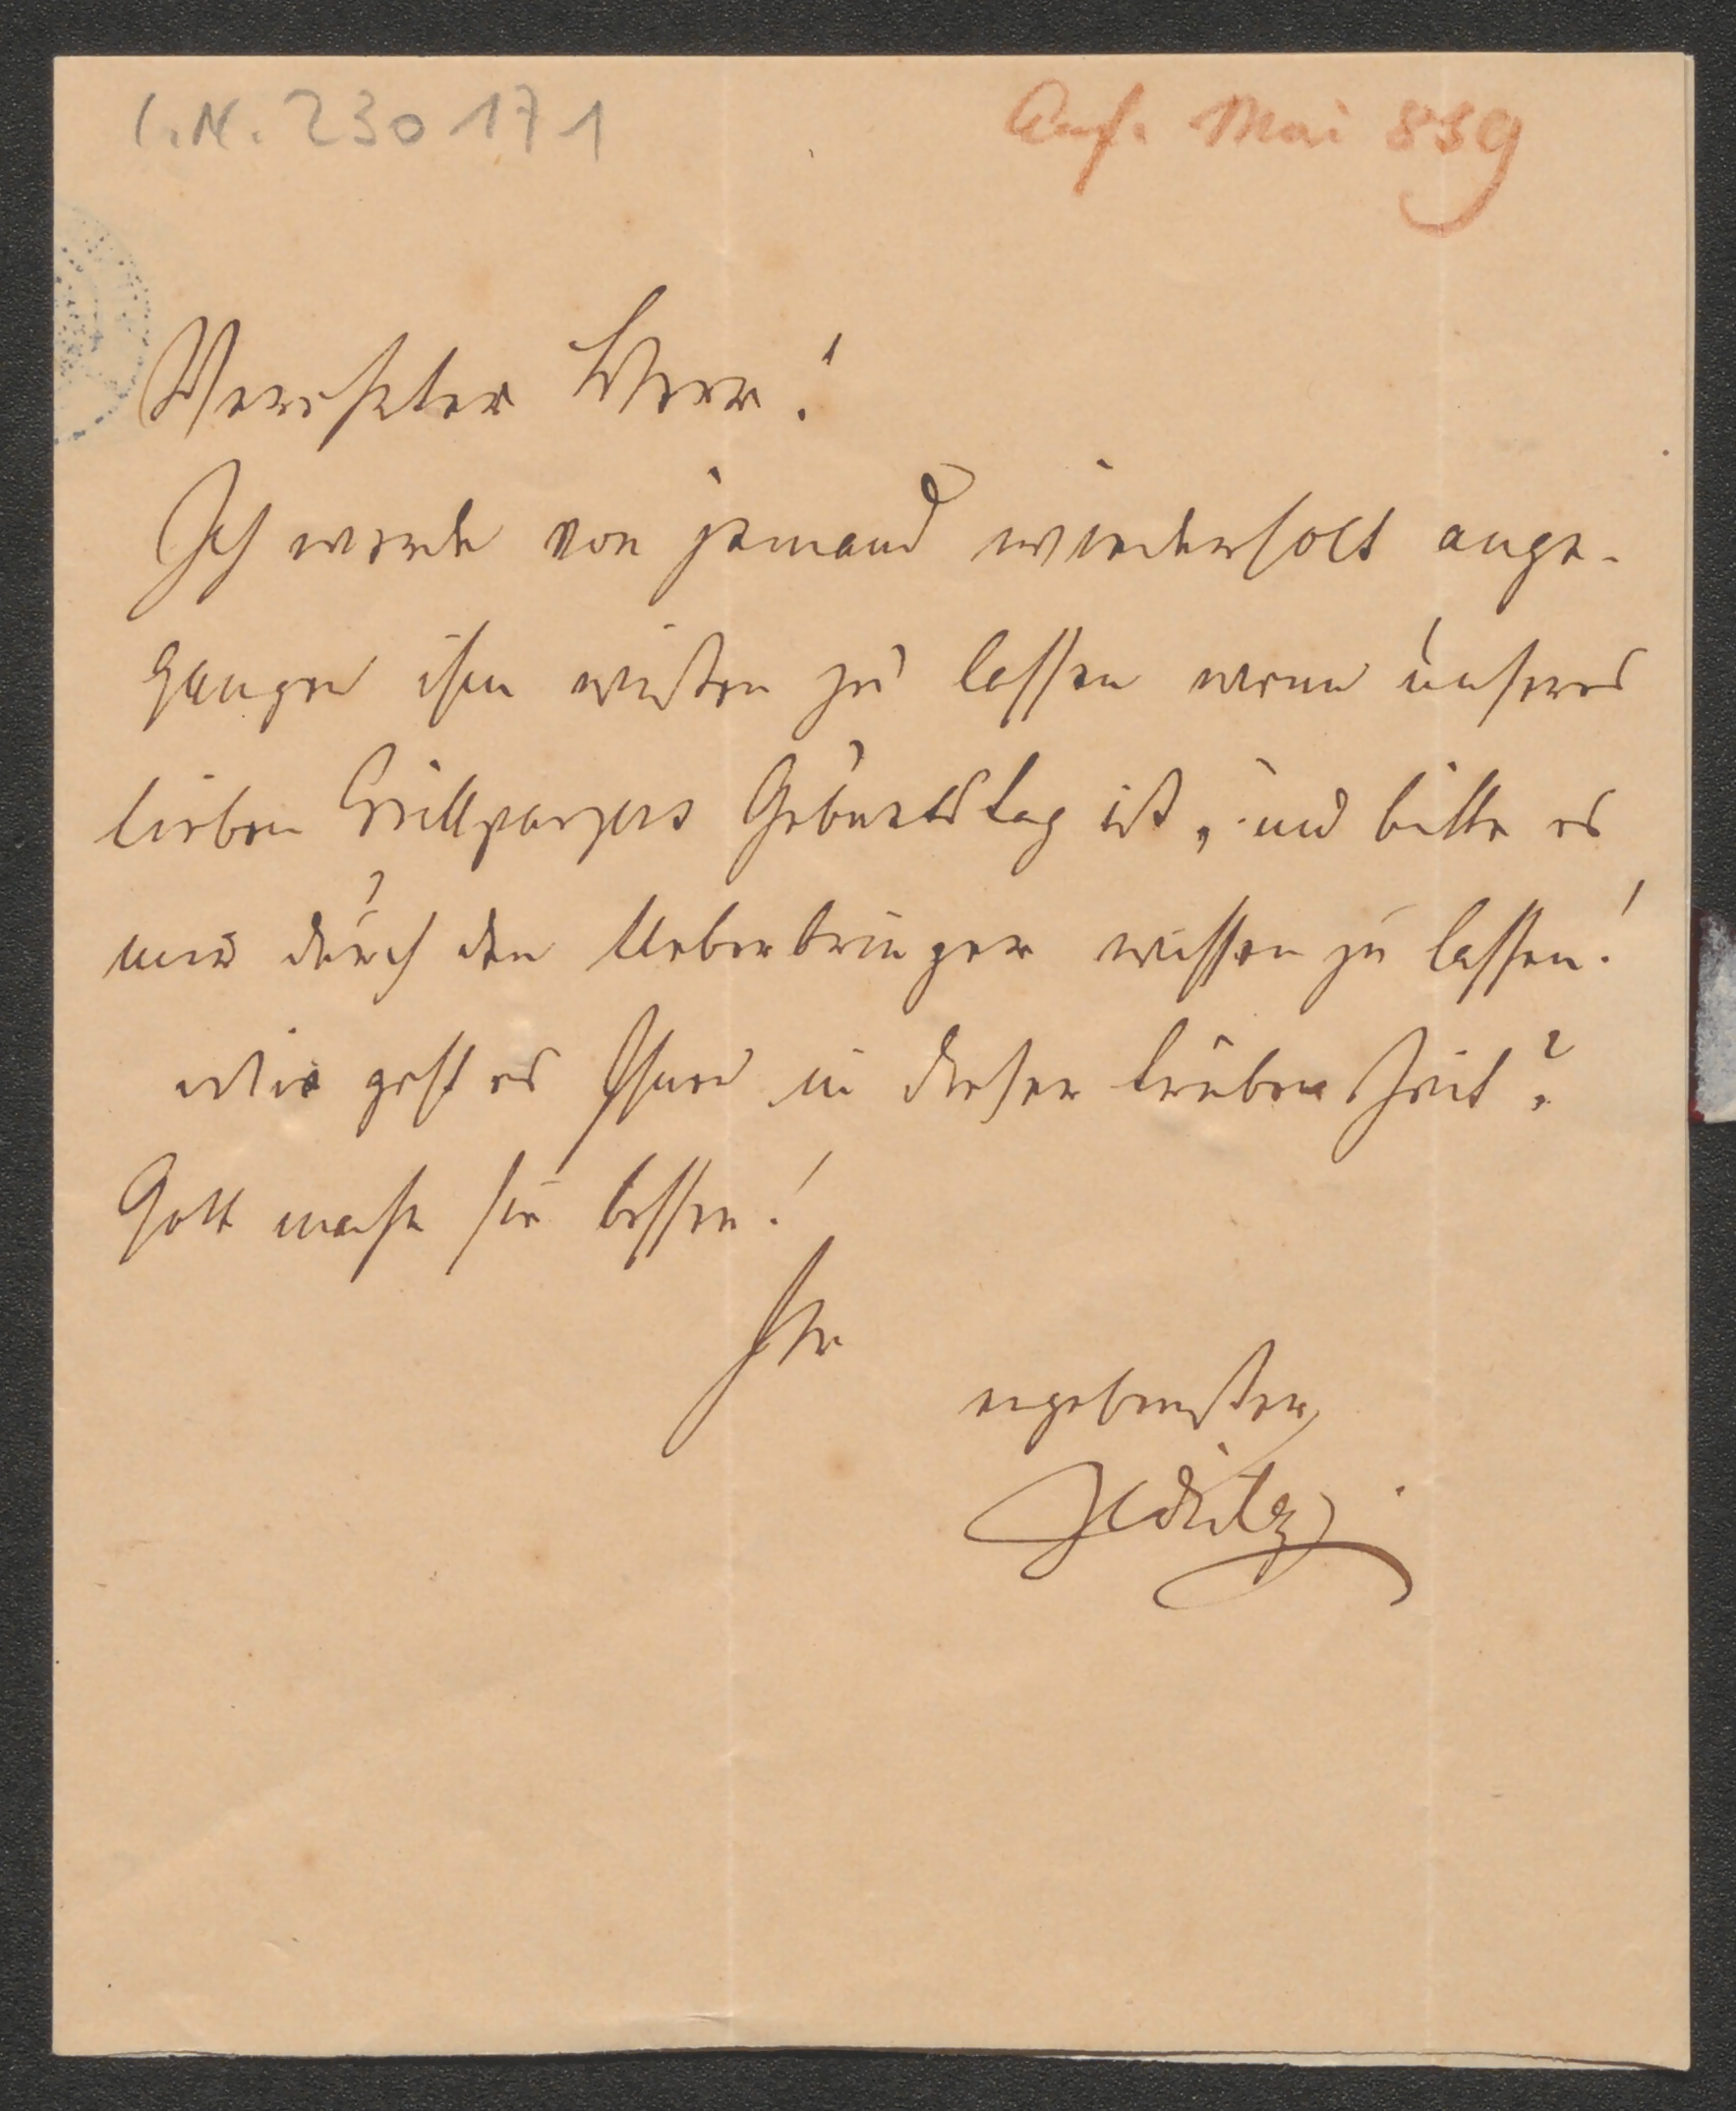 I.N. 230171
Anf. Mai 839
Verehrter Herr!
Ich werde von jemand wiederholt ange-
gangen ihn wißen zu lassen wenn unseres
lieben Grillparzers Geburtstag ist, und bitte es
mir durch den Ueberbringer wissen zu lassen!
Wie geht es Ihnen in dieser trüben Zeit?
Gott mache sie besser!
Ihr
ergebenster
Zedlitz